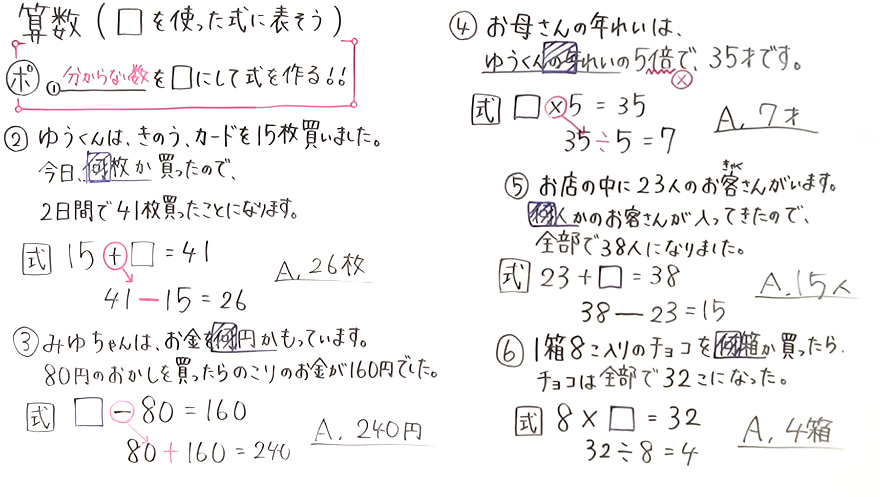 算数（□を使った式に表そう）
ポ ①分からない数を□にして式を作る!!
② ゆうくんは、きのう、カードを15枚買いました。
今日、何枚か買ったので、
2日間で41枚買ったことになります。
式 15＋□=41
41－15=26
A. 26枚
③ みゆちゃんは、お金を何円かもっています。
80円のおかしを買ったらのこりのお金が160円でした。
式 □－80=160
80+160=240
A. 240円
④ お母さんの年れいは、
ゆうくんの年れいの5倍で、35才です。
×
式 □×5=35
35÷5=7
A. 7才
きゃく
⑤ お店の中に23人のお客さんがいます。
何人かのお客さんが入ってきたので、
全部で38人になりました。
式 23+□=38
38－23=15
A. 15人
⑥ 1箱8こ入りのチョコを何箱か買ったら、
チョコは全部で32こになった。
式 8×□=32
32÷8=4
A. 4箱